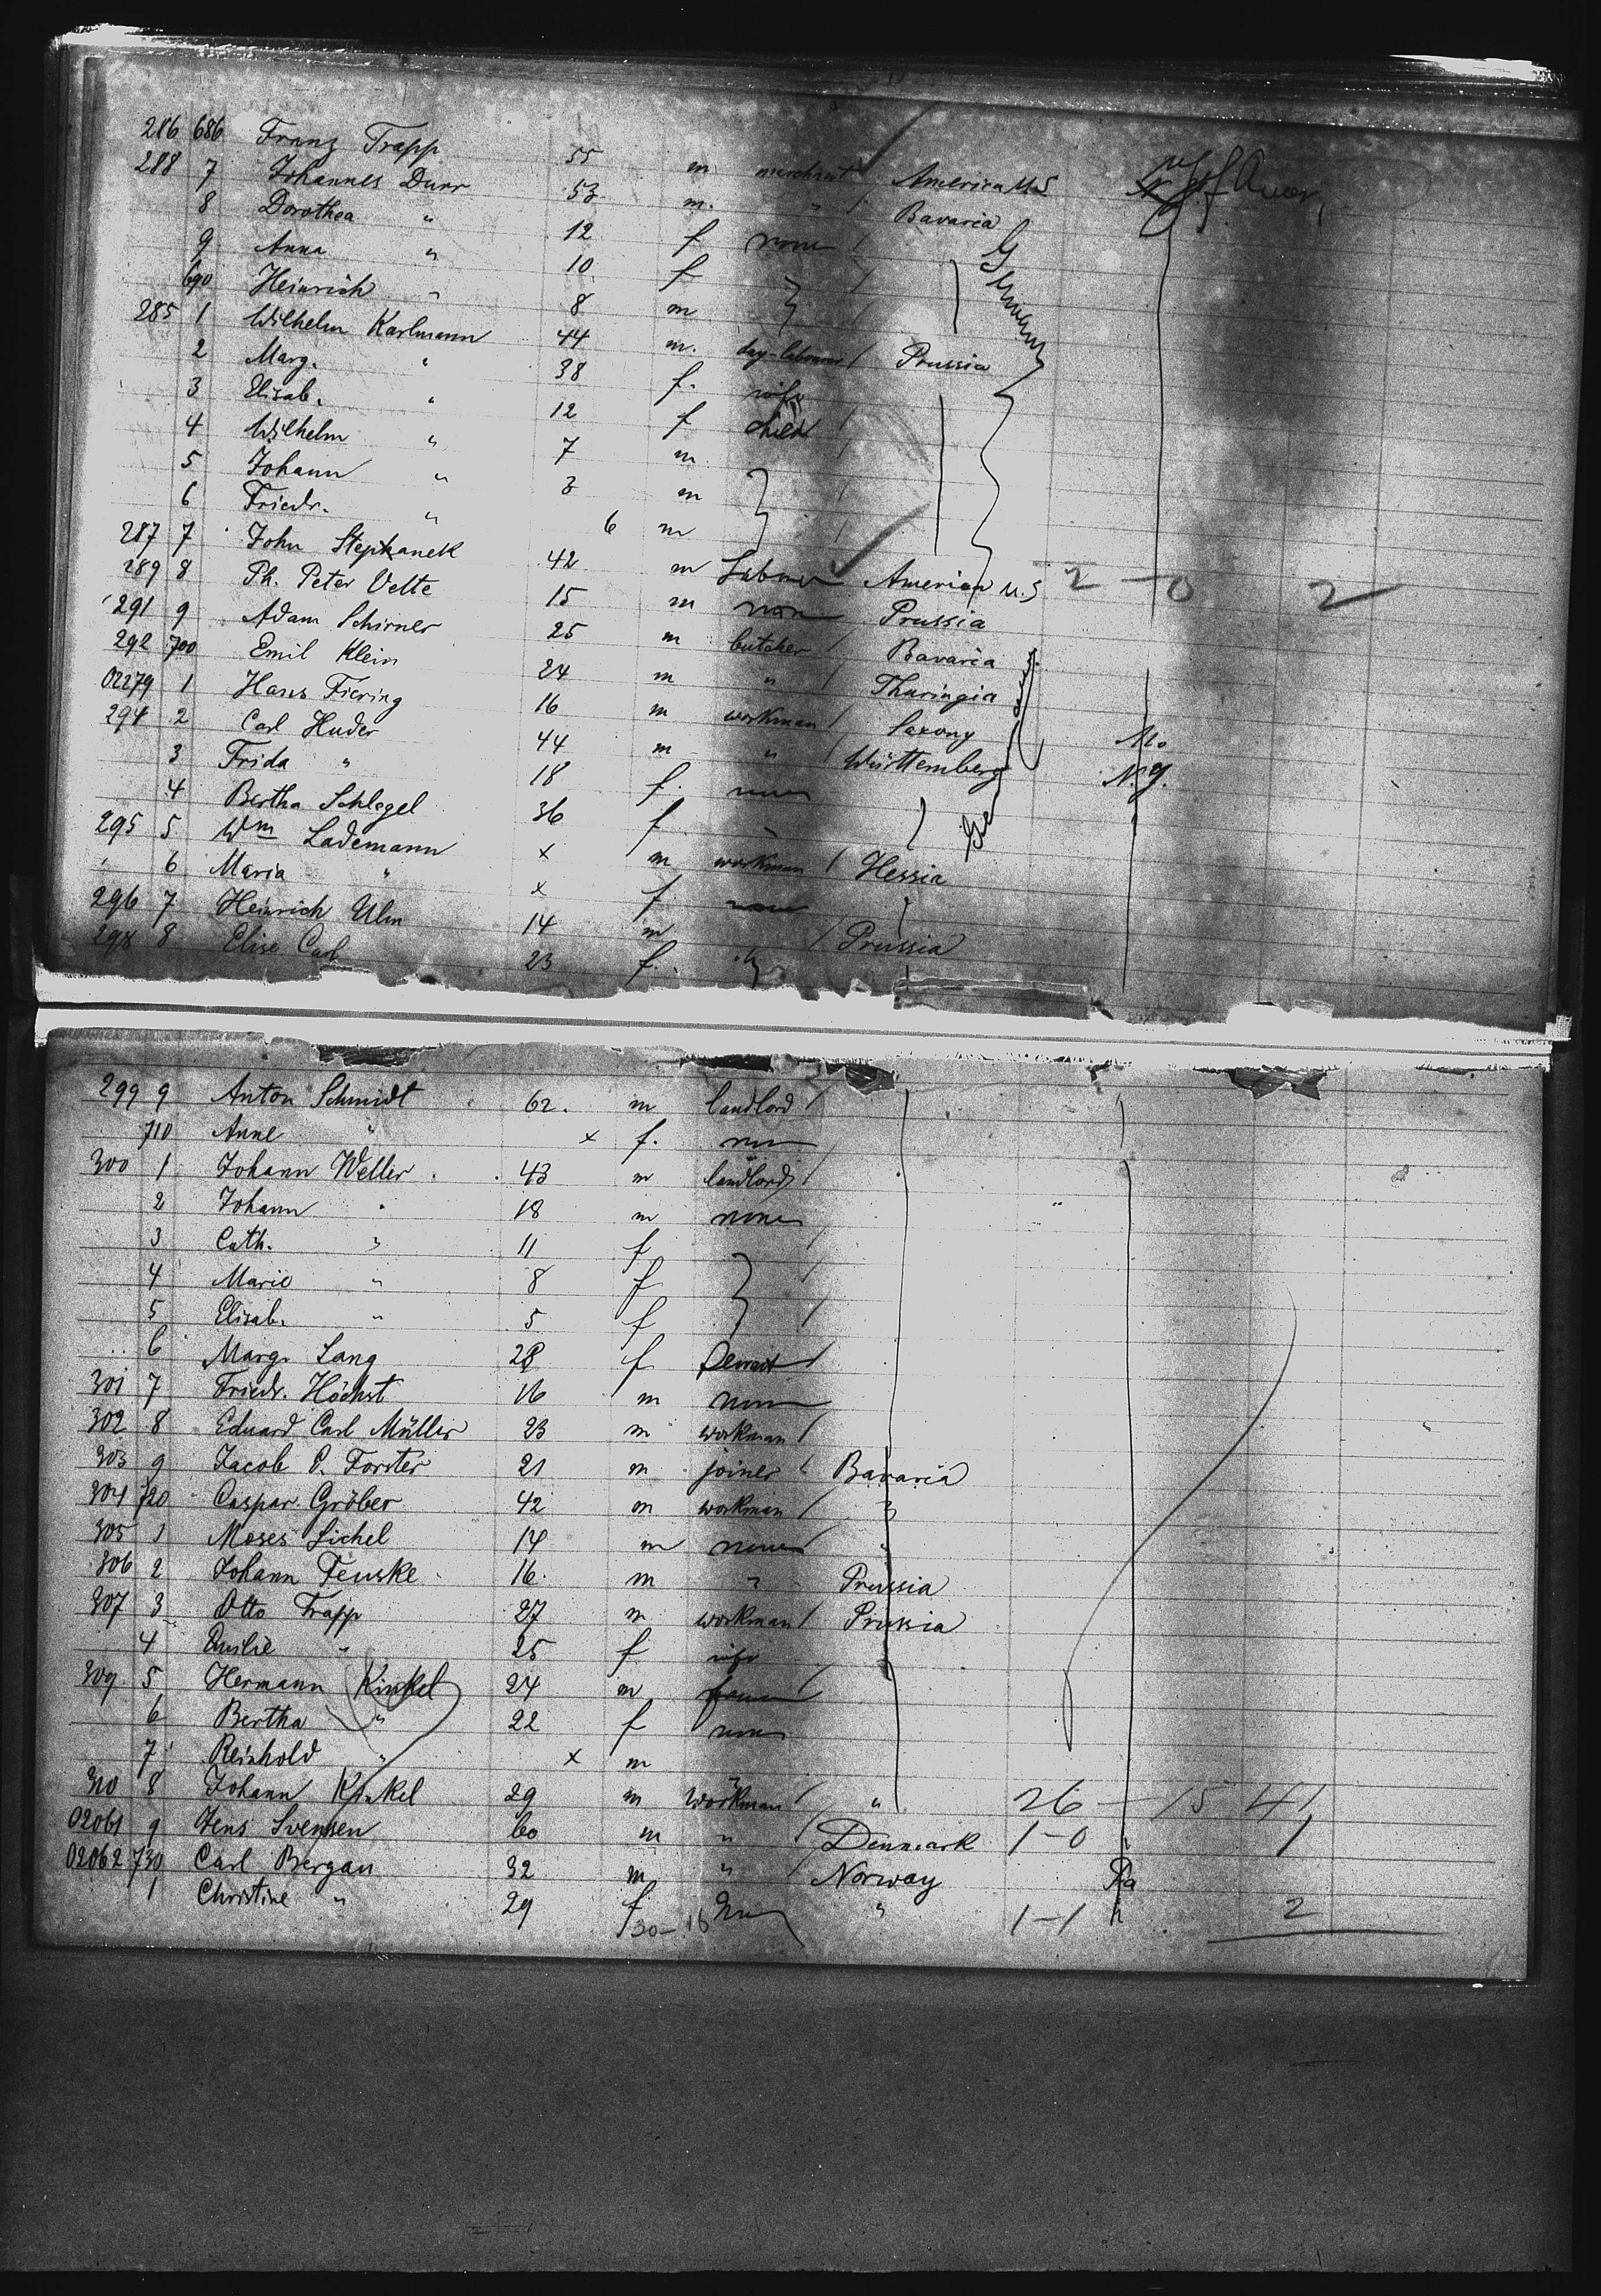 286 686 Franz Trapp 55 m merchant America U.S U.S. of Amer.
288 7 Johannes Durr 53 m. " / Bavaria
8 Dorothea " 12 f none /
9 Anna " 10 f
690 Heinrich " 8 m
285 1 Wilhelm Karlmann 44 m. day-labourer / Prussia
2 Marg. " 38 f. wife
3 Elisab. " 12 f child /
4 Wilhelm " 7 m
5 Johann " 3 m
6 Friedr. " 6 m
287 7 John Stephanek 42 m Labourer America U.S 2 - 0 2
289 8 Ph. Peter Vette 15 m none Prussia
291 9 Adam Schirner 25 m butcher / Bavaria
292 700 Emil Klein 24 m " / Thuringia
02279 1 Hans Fiering 16 m workman / Saxony Mo
294 2 Carl Huder 44 m " / Württemberg N.Y.
3 Frida " 18 f. none
4 Bertha Schlegel 36 f
295 5 Wm Lademann x m workman / Hessia
6 Maria " x f none
296 7 Heinrich Ulm 14 m / Prussia
298 8 Elise Carl 23 f.
299 9 Anton Schmidt 62. m landlord /
710 Anne " x f. none
300 1 Johann Weller 43 m landlord /
2 Johann " 18 m none
3 Cath. " 11 f
4 Marie " 8 f
5 Elisab. " 5 f
6 Marg. Lang 28 f servant /
301 7 Friedr. Höchst 16 m none
302 8 Eduard Carl Müller 23 m workman /
303 9 Jacob P. Forster 21 m joiner Bavaria
304 720 Caspar Gröber 42 m workman / "
305 1 Moses Sichel 14 m none "
306 2 Johann Feuske 16. m " Prussia
307 3 Otto Trapp 27 m workman / Prussia
4 Emilie " 25 f wife
309 5 Hermann Kinkel 24 m farmer
6 Bertha " 22 f none
7 Reinhold " x m
310 8 Johann Kinkel 29 m workman / " 26 - 15 41
02061 9 Jens Svensen 60 m " / Denmark 1-0 " 1
02062 730 Carl Bergan 32 m " / Norway Pa
1 Christine " 29 f " 1-1 " 2
30-16